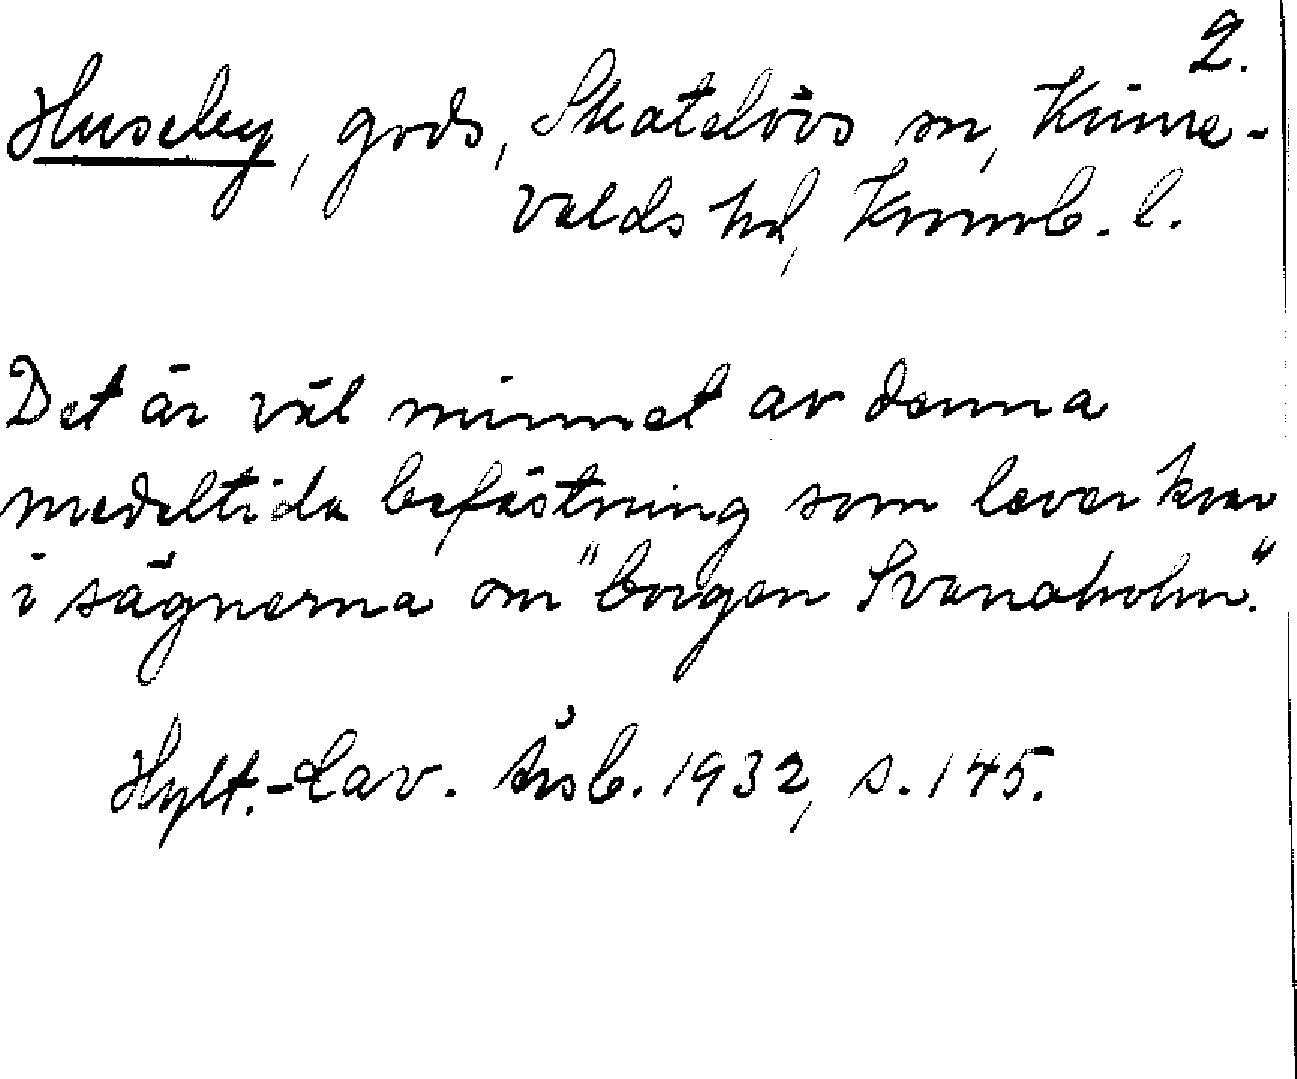 2.
Huseby, gods, Skatelövs sn, Kinne-
valds hd, Kronob. l.
Det är väl minnet av denna
medeltida befästning som lever kvar
i sägnerna om "borgen Svanaholm."
Hylt.-Cav. Årsb. 1932, s. 145.